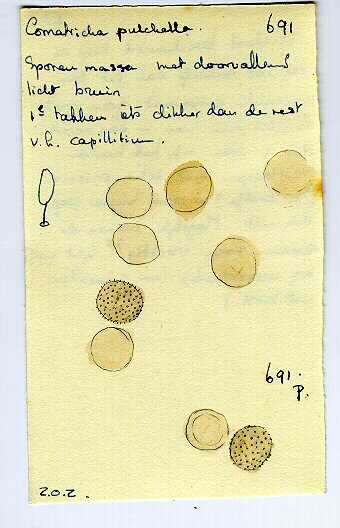 Comatricha pulchella. 691
Sporen massa met doorvallend
licht bruin
1e takken iets dikker dan de rest
v.h. capillitium.
691.
P.
2.0.2.